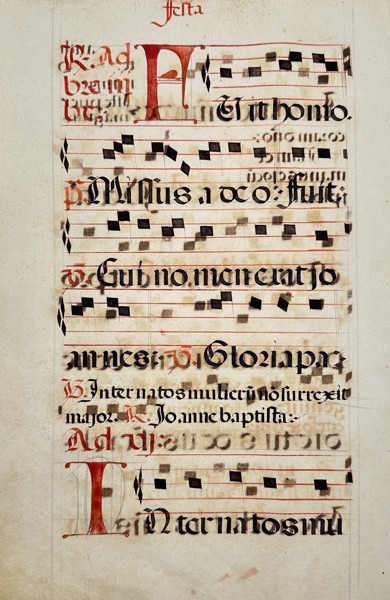 festa
R. Ad
F
Uit homo.
Missus a deo: fuit
V. Cui nomen erat Jo
annes: V. Gloria pa:
V. Inter natos mulierū nō surrexit
major. R. Joanne baptista:~
Ad
INter natos mu